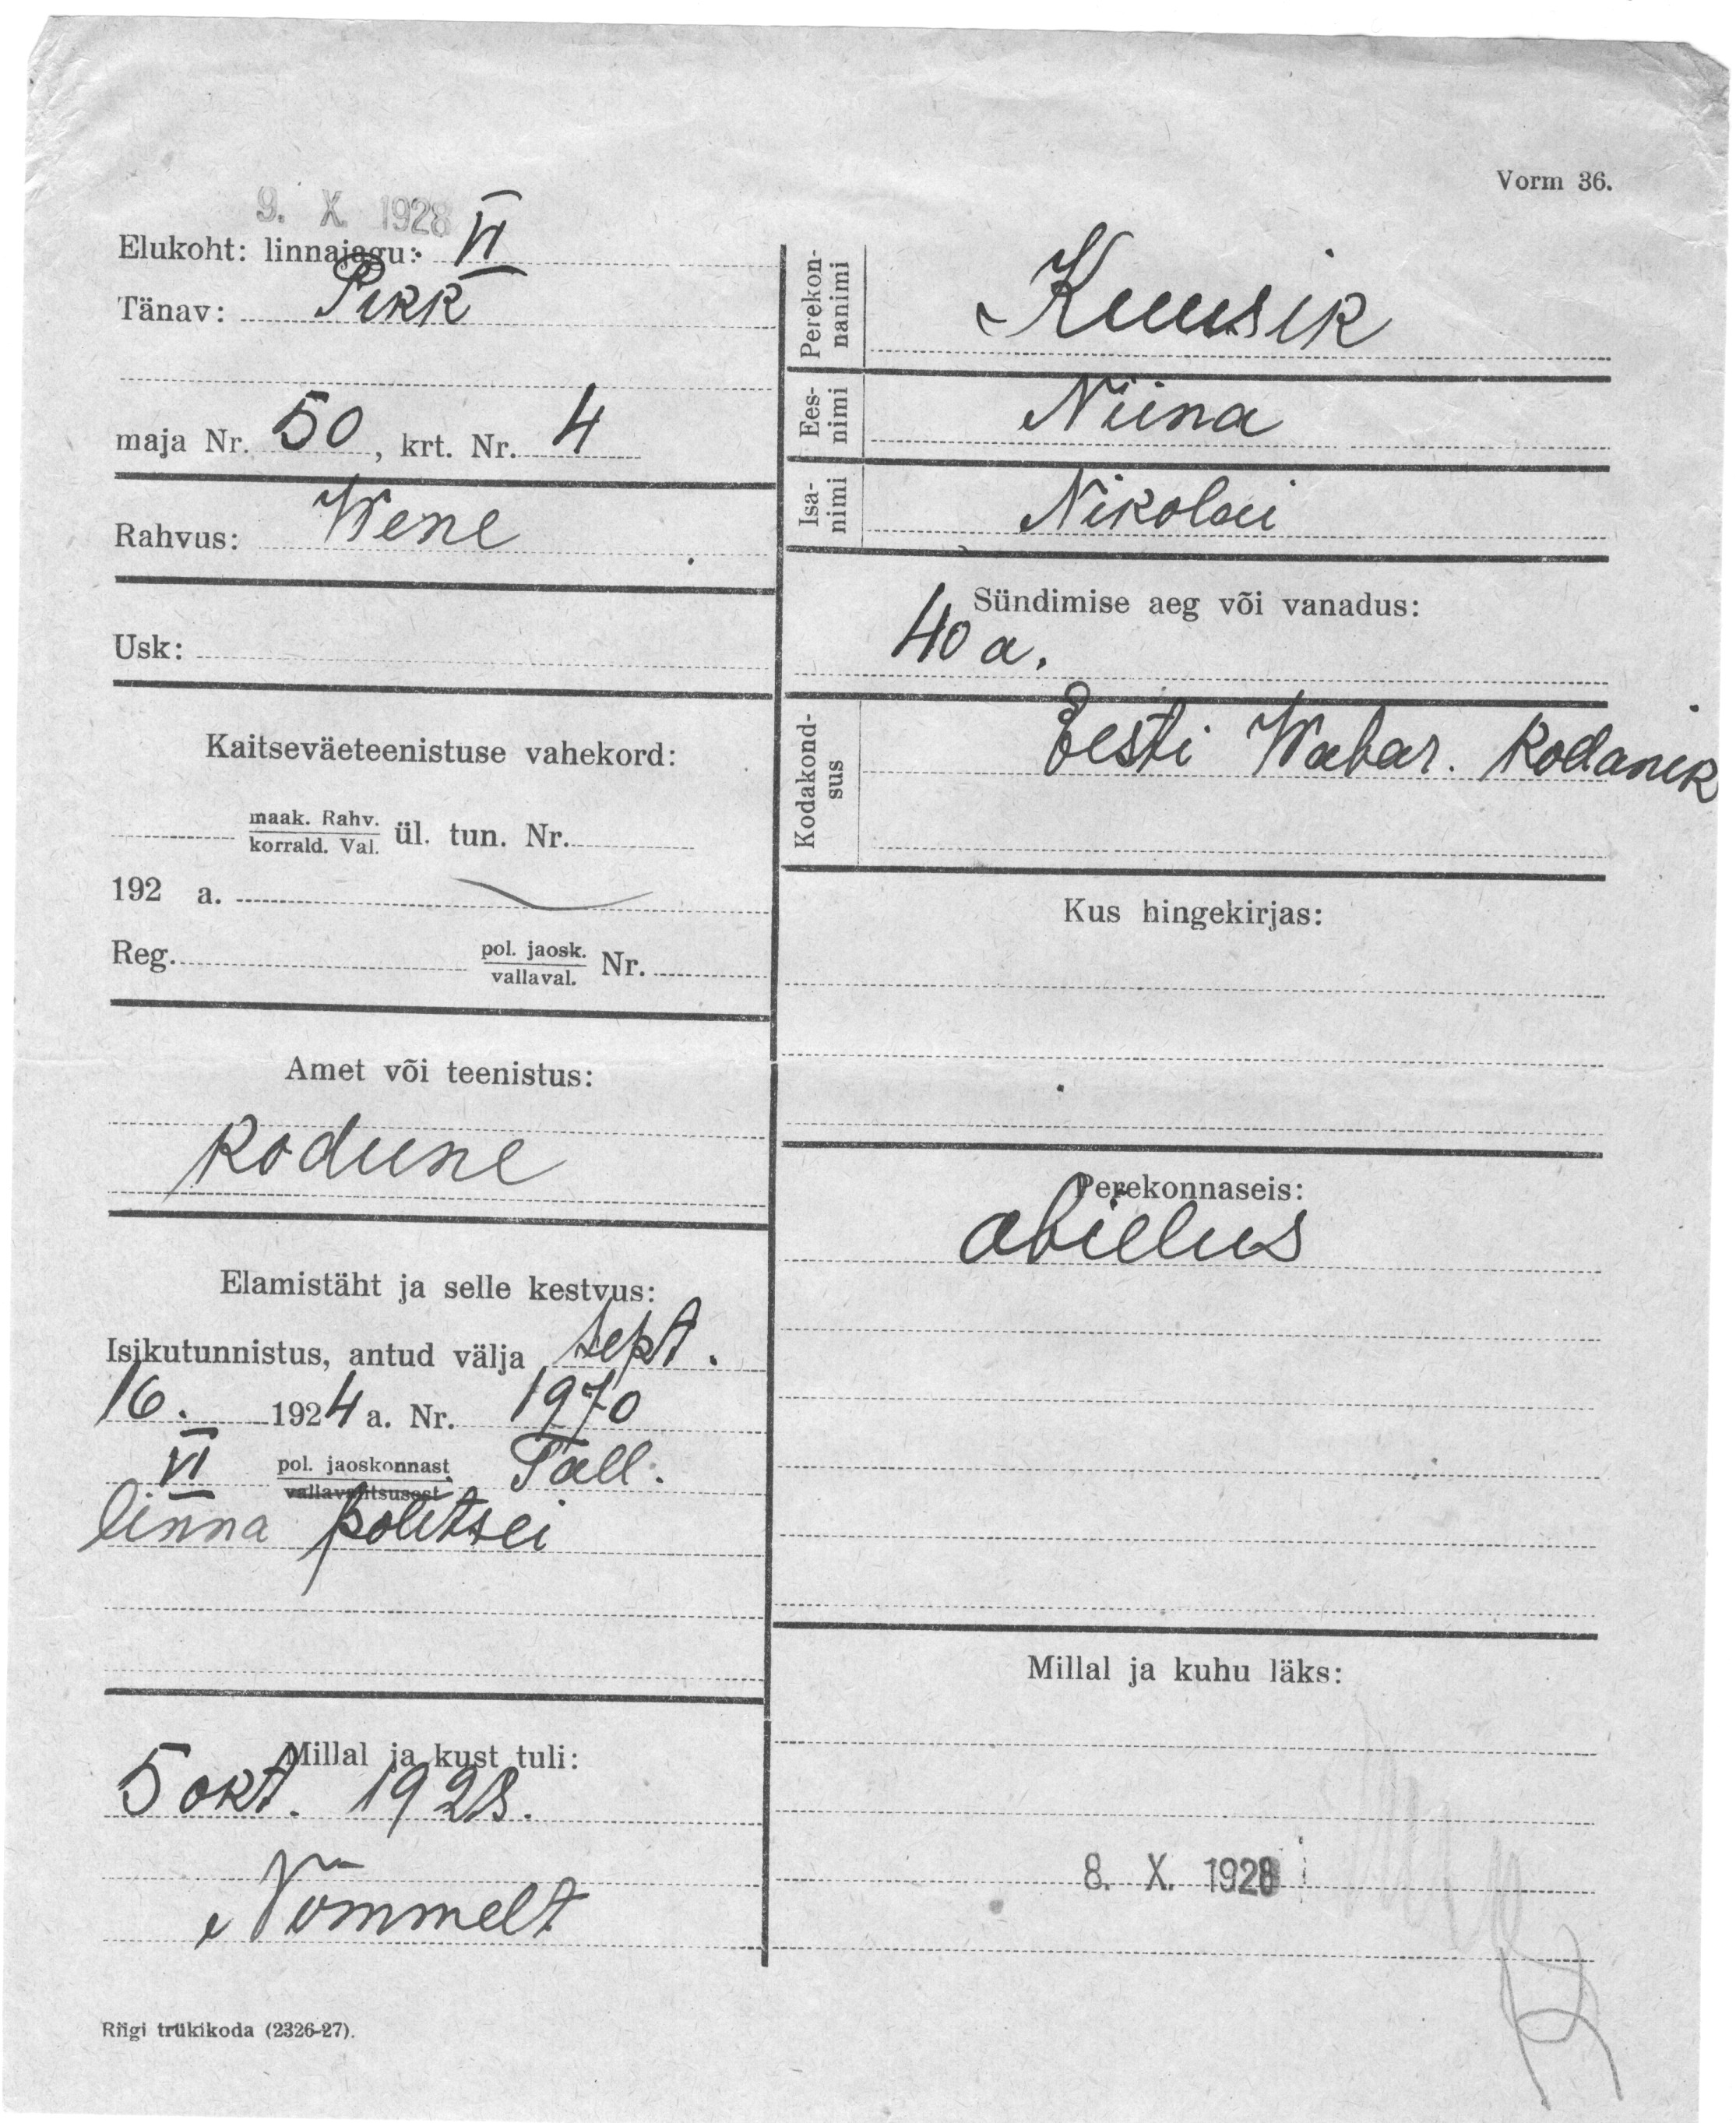 Vorm 36.
9. X. 1928
Elukoht: linnajagu: VI
Tänav: Pikk
maja Nr. 50, krt. Nr. 4
Rahvus: Wene
Usk:
Kaitseväeteenistuse vahekord:
maak. Rahv.
korrald. Val. ül. tun. Nr.
192 a.
Reg. pol. jaosk. Nr.
vallaval.
Amet või teenistus:
kodune
Elamistäht ja selle kestvus:
Isikutunnistus, antud välja sept.
16. 1924 a. Nr. 1970
VI pol. jaoskonnast Tall.
vallavalitsusest
linna politsei
Millal ja kust tuli:
5 okt. 1928.
Nõmmelt
Riigi trükikoda (2326-27).
Perekon-
nanimi
Kuusik
Ees-
nimi
Niina
Isa-
nimi
Nikolai
Sündimise aeg või vanadus:
40 a.
Kodakond-
sus
Eesti Wabar. kodanik
Kus hingekirjas:
Perekonnaseis:
abielus
Millal ja kuhu läks:
8. X. 1928